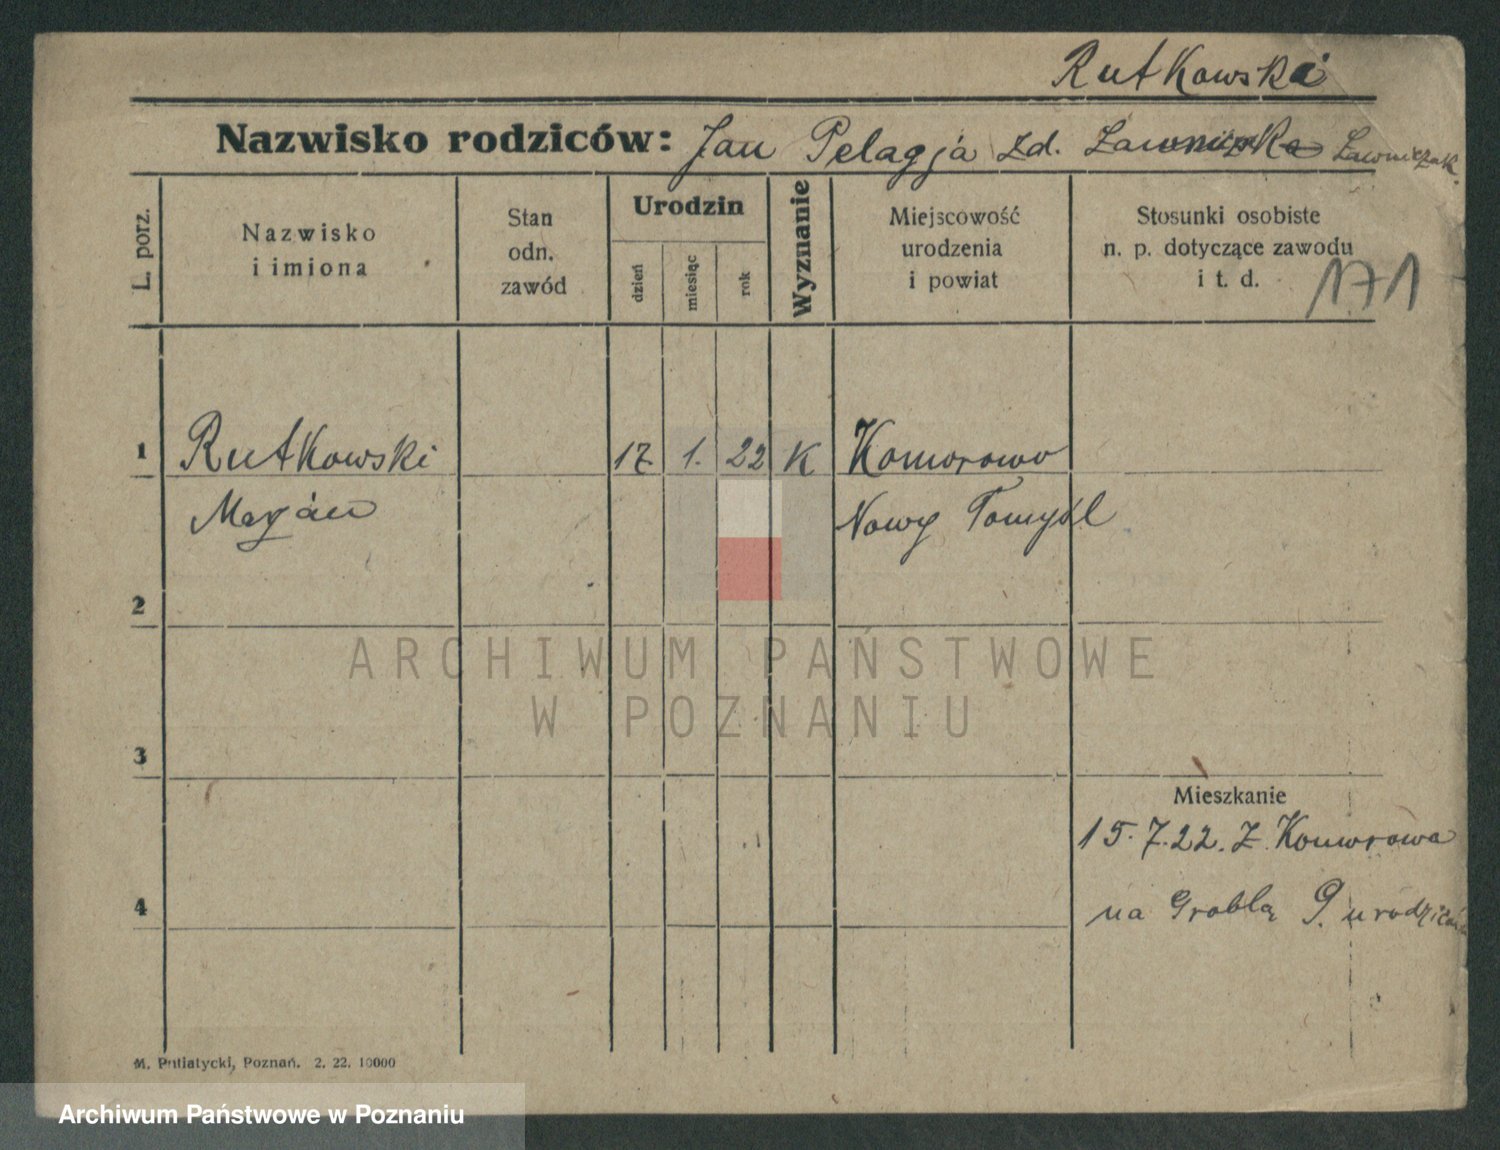 Rutkowski
Nazwisko rodziców: Jan Pelagja zd. Ławniczak
L. porz.
Nazwisko
i imiona
Stan
odn.
zawód
Urodzin
dzień
miesiąc
rok
Wyznanie
Miejscowość
urodzenia
i powiat
Stosunki osobiste
n. p. dotyczące zawodu
i t. d.
171
1 Rutkowski 17. 1. 22 K Komorowo
Marjan Nowy Tomysl
2
ARCHIWUM PAŃSTWOWE
W POZNANIU
3
Mieszkanie
15.7.22. z Komorowa
4
na Groblą 9. u rodziców
M. Putiatycki, Poznań. 2. 22. 10000
Archiwum Państwowe w Poznaniu